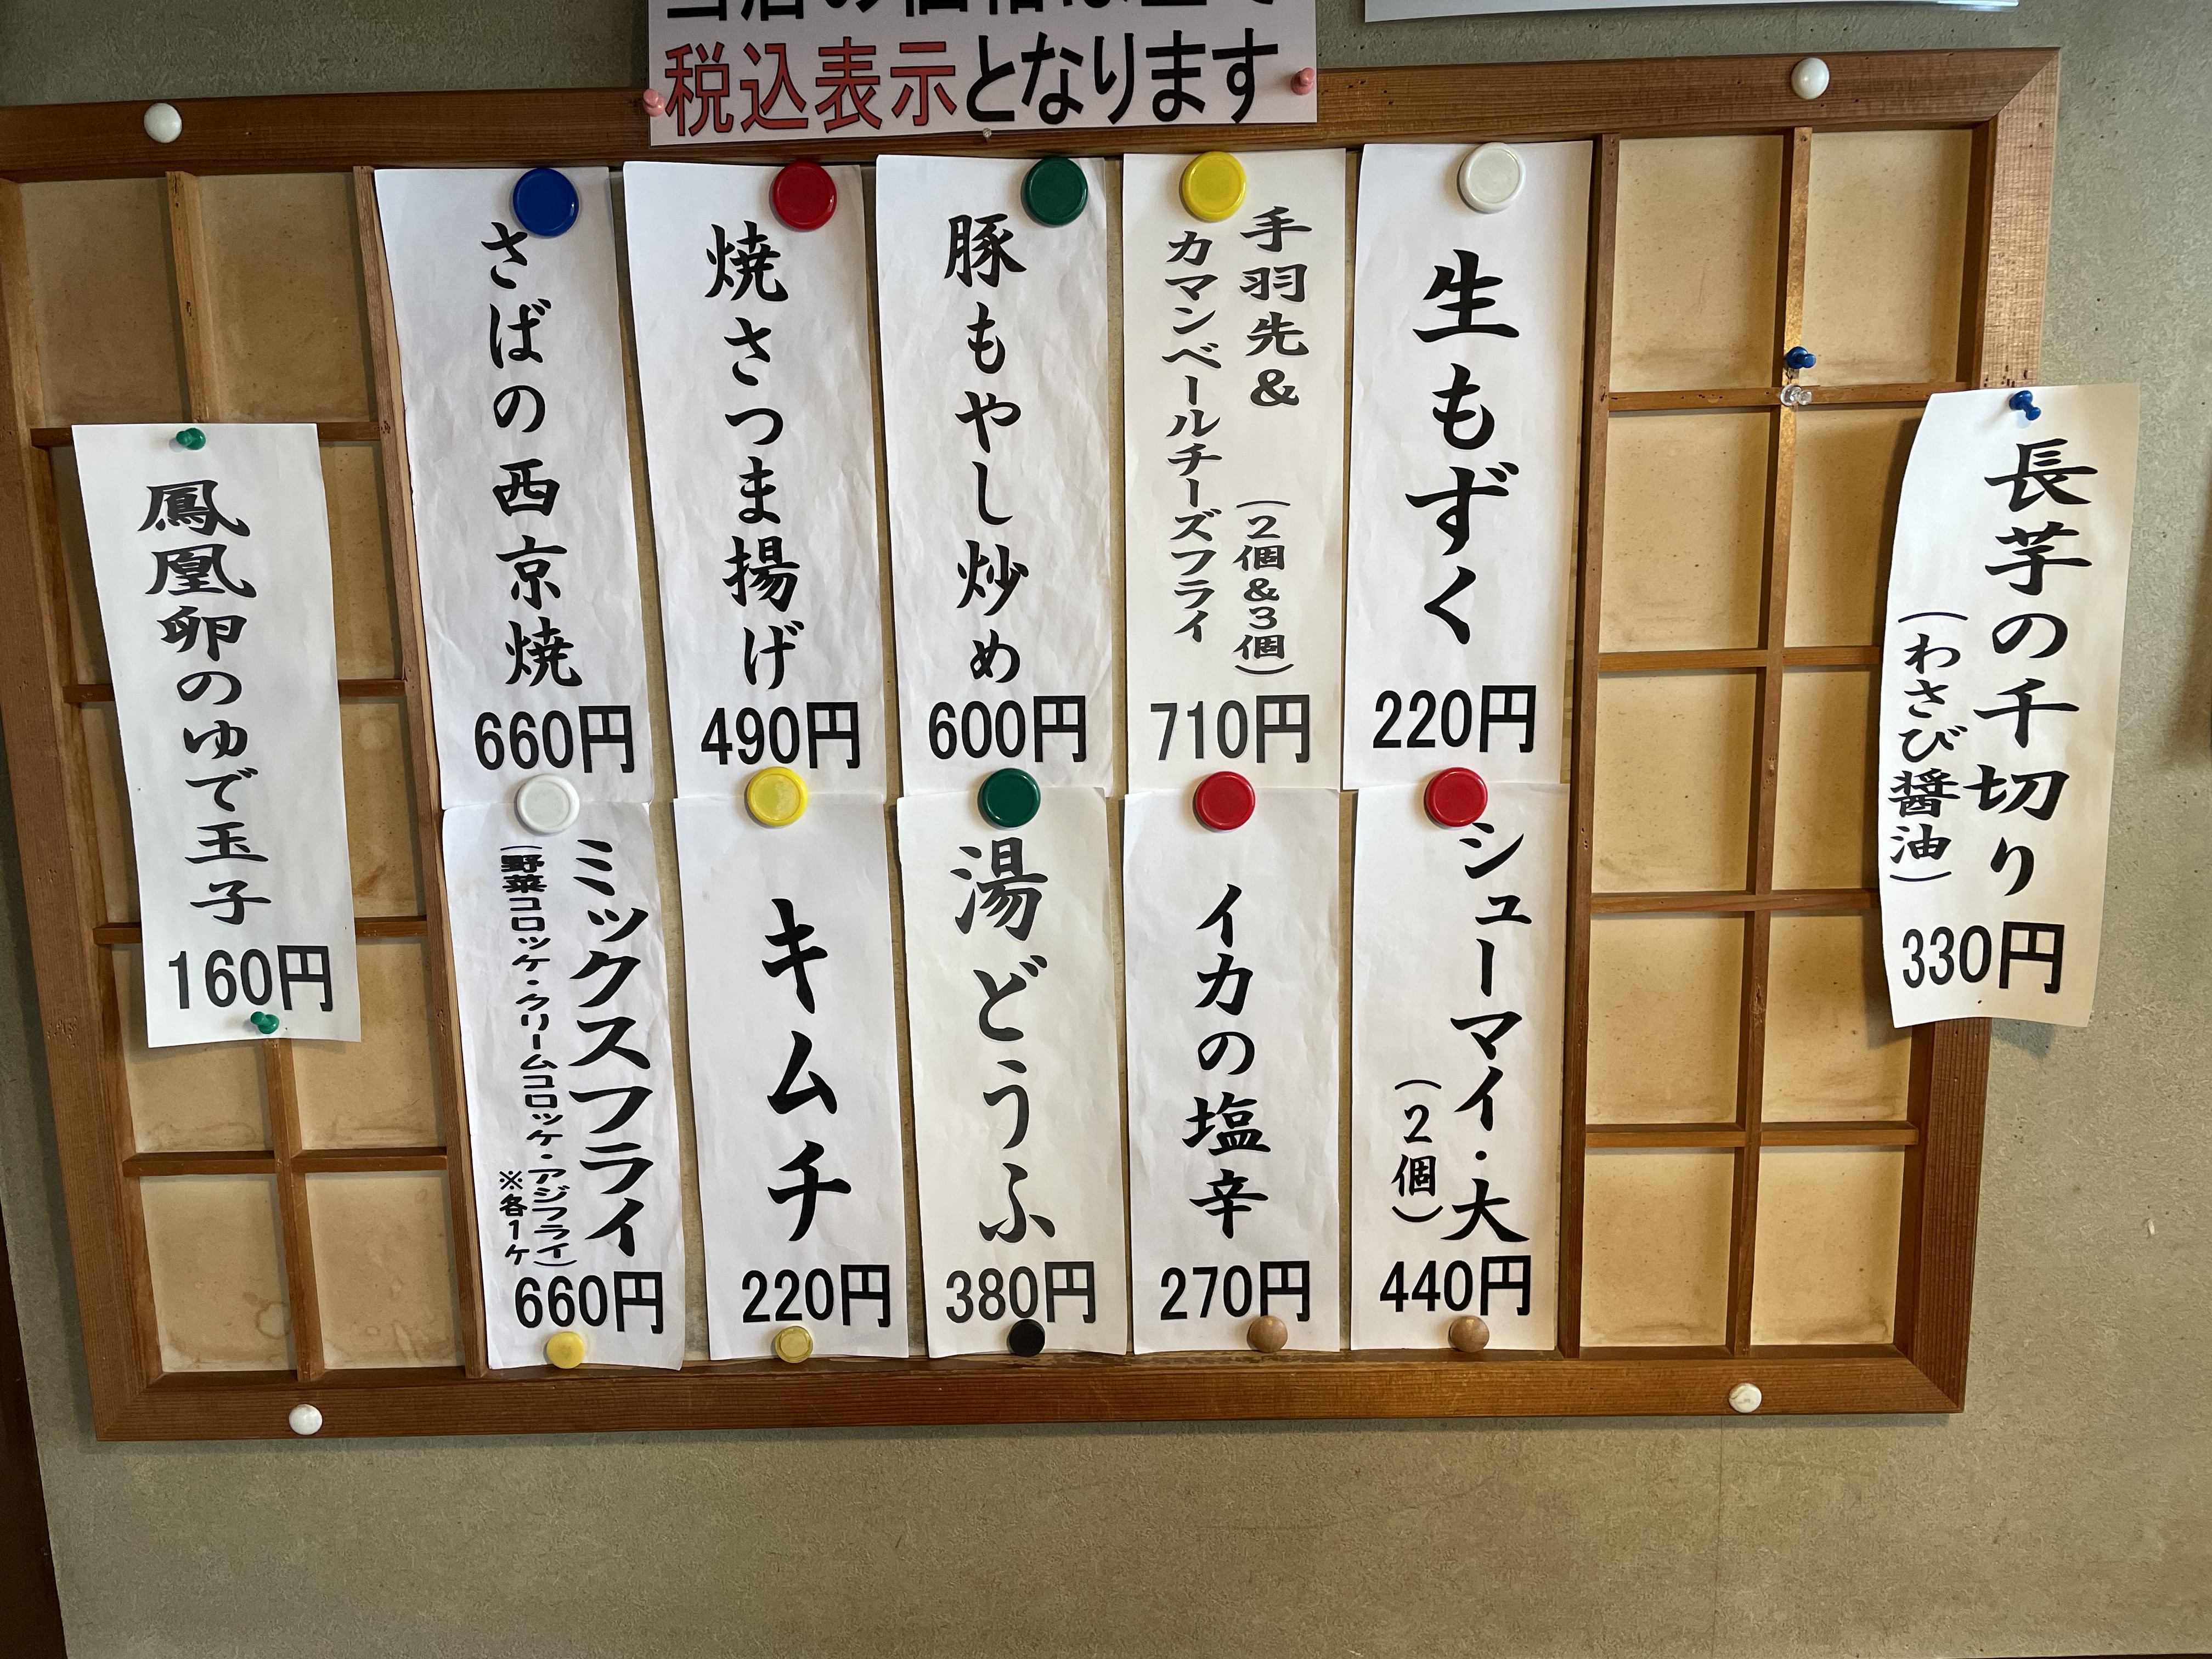 税込表示となります
長芋の千切り
（わさび醤油）
330円
生もずく
220円
手羽先&　（2個&3個）
カマンベールチーズフライ
710円
豚もやし炒め
600円
焼さつま揚げ
490円
さばの西京焼
660円
シューマイ・大
（2個）
440円
イカの塩辛
270円
湯どうふ
380円
キムチ
220円
ミックスフライ
（野菜コロッケ・クリームコロッケ・アジフライ）
※各1ケ
660円
鳳凰卵のゆで玉子
160円